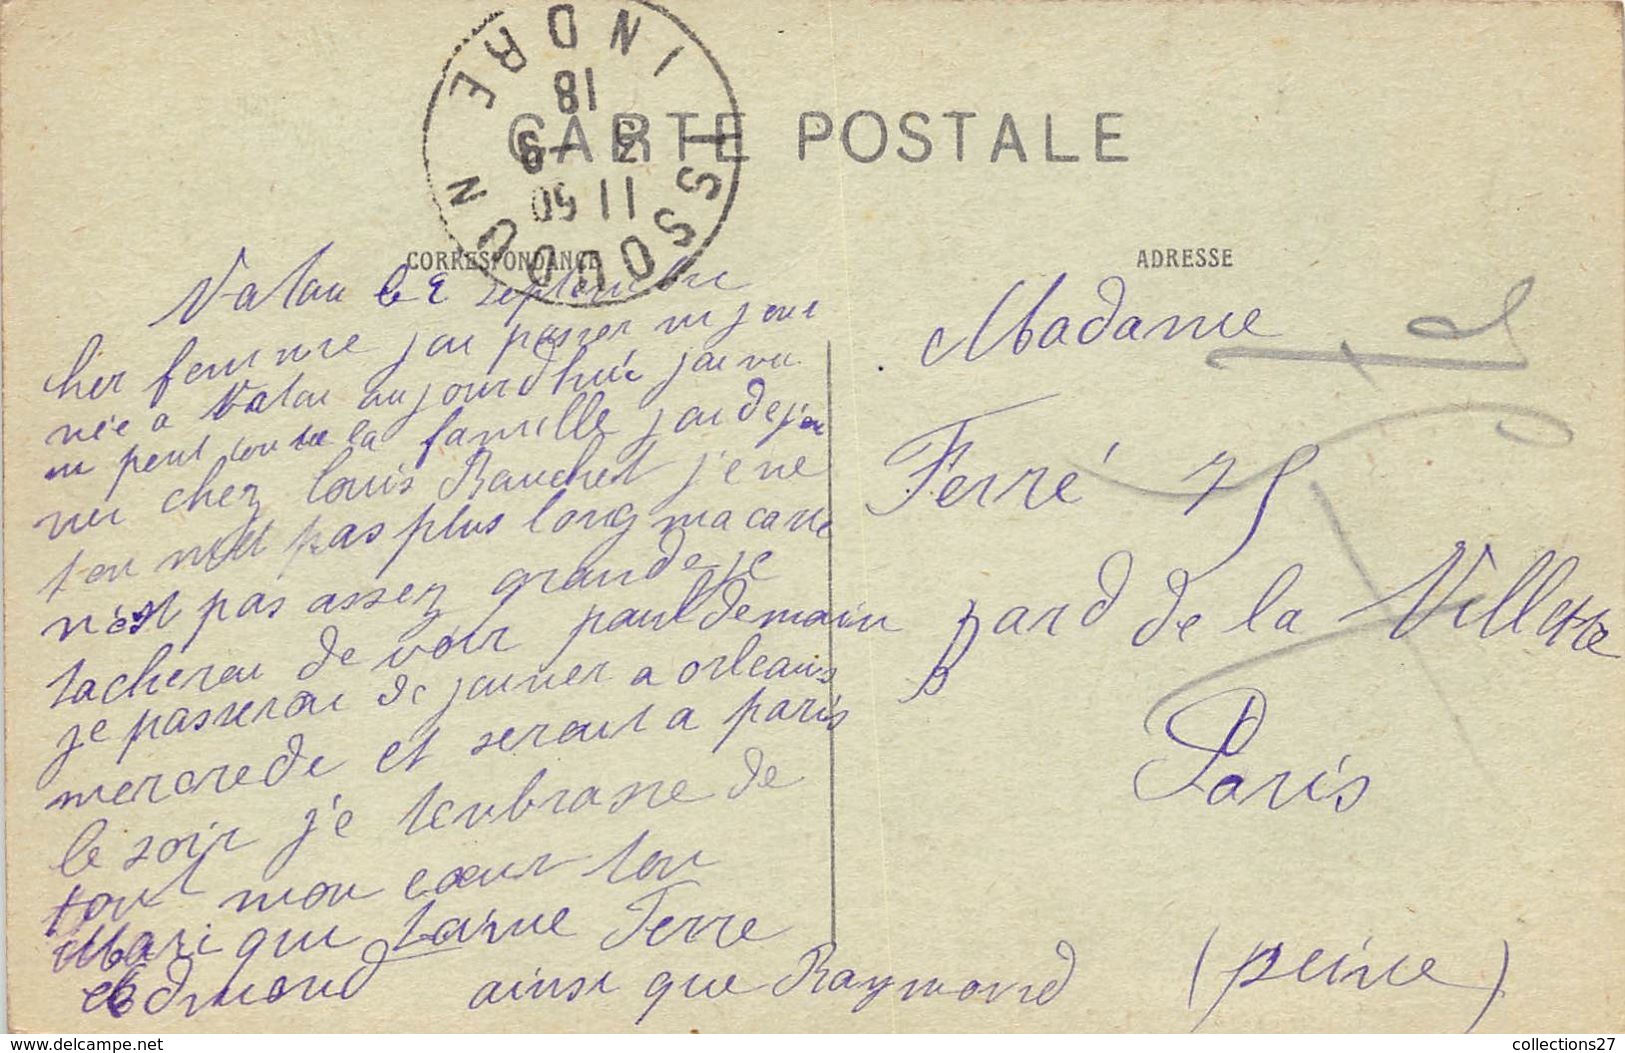 INDRE
18
3 - 9
11 50
ISSOUDUN
CARTE POSTALE
CORRESPONDANCE
ADRESSE
Vatan le 2 septembre
cher femme jai passer un jour
née a Vatan aujourdhui jai vu
un peut toute la famille jai dejeu
ner chez louis Bauchet je ne
ten met pas plus long ma carte
n'est pas assez grande je
tacherai de voir paul demain
je passerai de jouner a orleans
mercrede et serait a paris
le soir je tenbrasse de
tout mon cœur ton
Mari qui taime Ferre
Edmond ainsi que Raymond
Madame
Ferré 75
Bard de la Villette
Paris
(peine)
collections27